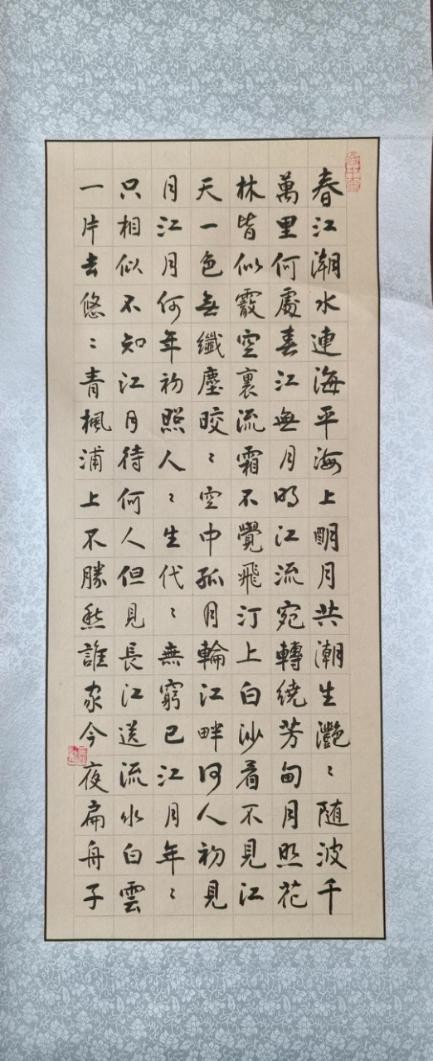 春江潮水連海平海上明月共潮生灔〻随波千
萬里何處春江無月明江流宛轉繞芳甸月照花
林皆似霰空裏流霜不覺飛汀上白沙看不見江
天一色無纖塵皎〻空中孤月輪江畔何人初見
月江月何年初照人〻生代〻無窮已江月年〻
只相似不知江月待何人但見長江送流水白雲
一片去悠〻青楓浦上不勝愁誰家今夜扁舟子